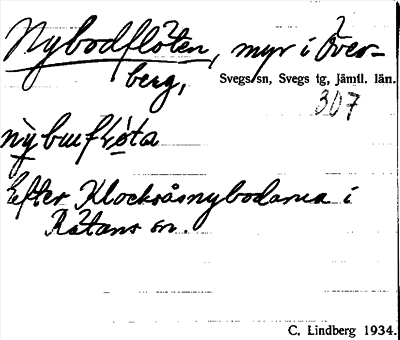 Nybodflöten, myr i Över-
berg,
Svegs sn, Svegs tg, Jämtl. län.
307
Efter Klockråsnybodarna i
Rätans sn.
C. Lindberg 1934.